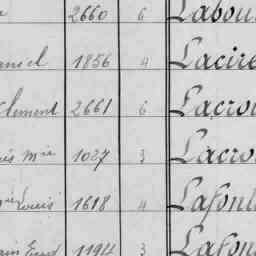 2660 6 Labou
aniel 1856 4 Lacire
Clement 2661 6 Lacroi
Mie 1027 3 Lacro
Louis 1618 4 Lafont
1194 3 Lafon